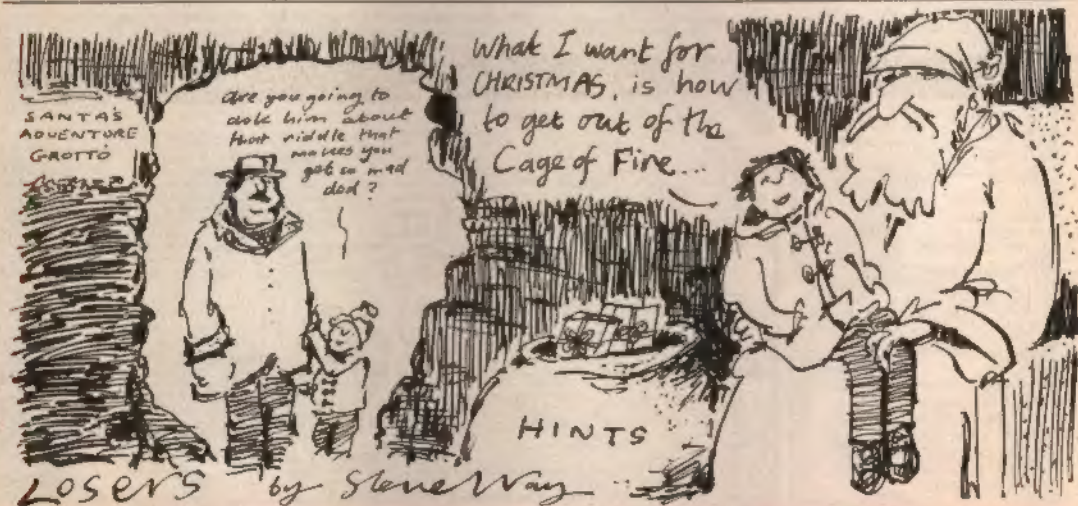 SANTA'S
ADVENTURE
GROTTO
Are you going to
ask him about
that riddle that
makes you
get so mad
dad?
What I want for
CHRISTMAS, is how
to get out of the
Cage of Fire...
HINTS
Losers by Steve Way